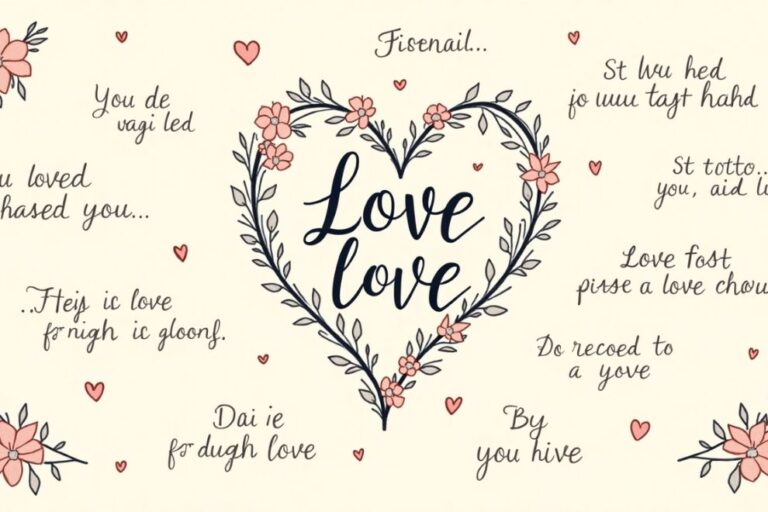 Fisenail...
You de
vagi led
St lwu hed
jo uuu taȷt hahd
u loved
hased you...
St totto..
you, aid lu
Love
love
Love fost
pirse a love chow
..Fteijs ic love
fornigh ic gloonf.
Do recoed to
a yove
Dai ie
for dugh love
By
you hive